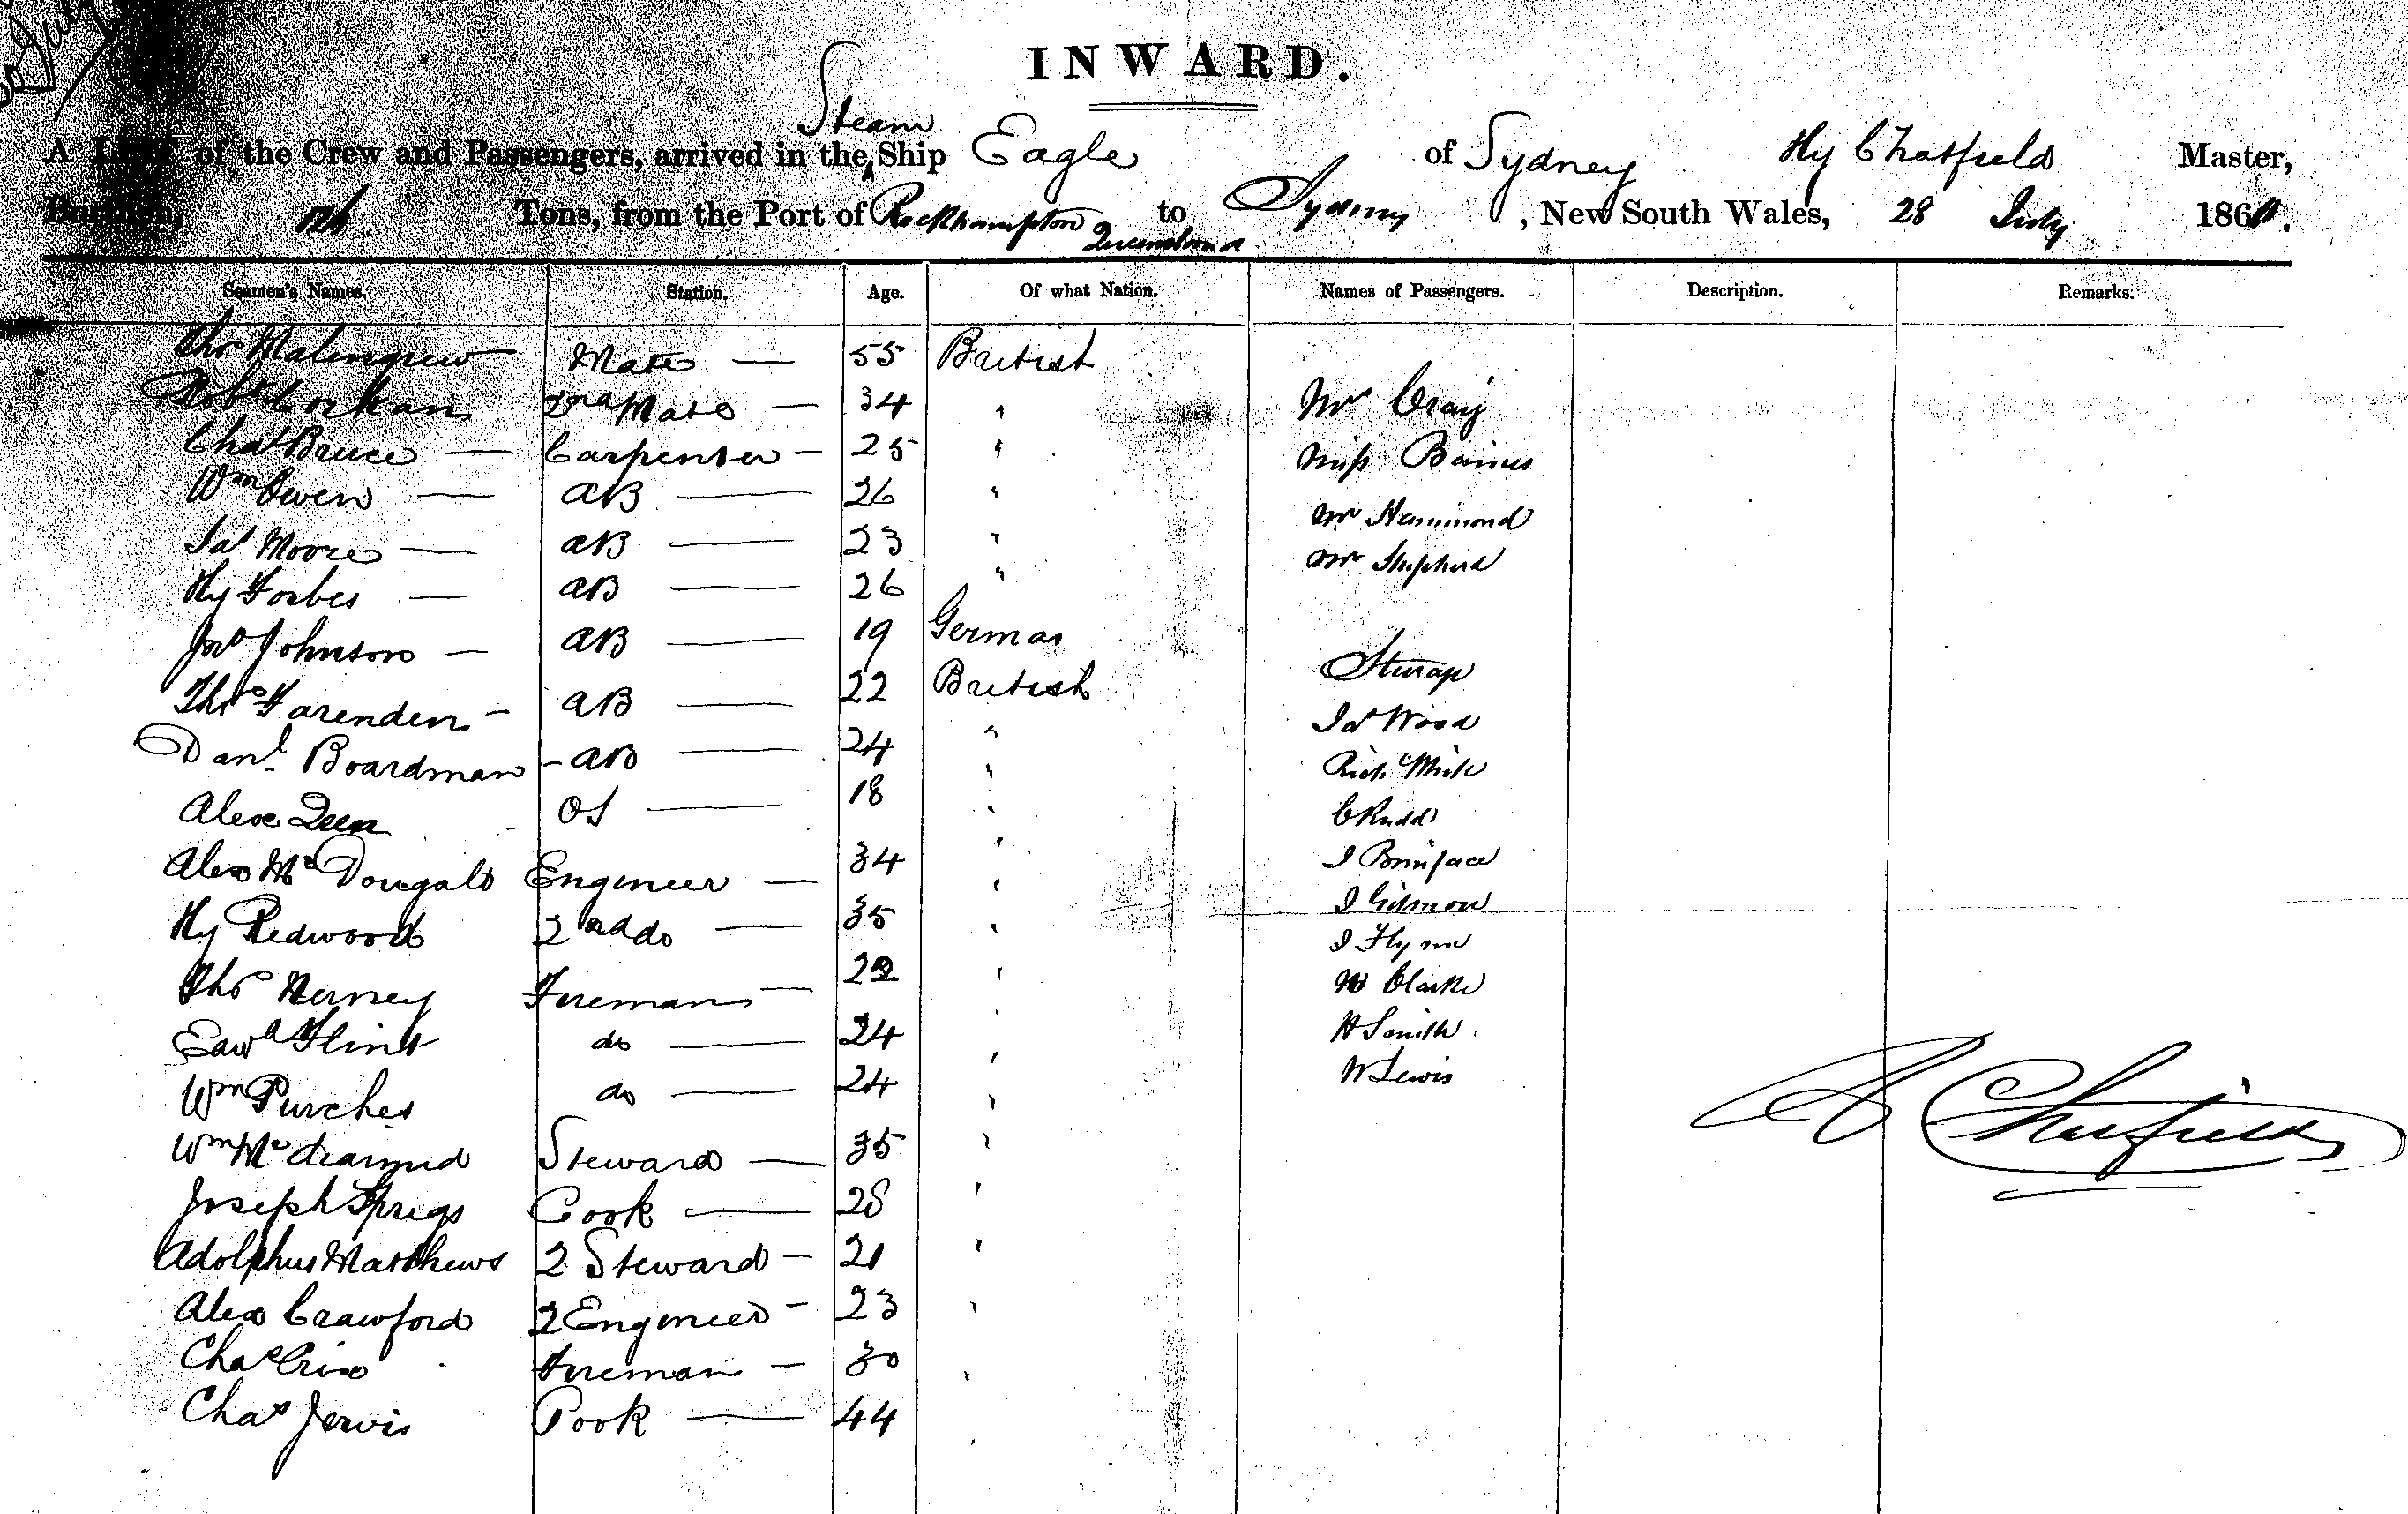 July
INWARD.
Steam
A List of the Crew and Passengers, arrived in the Ship Eagle of Sydney Hy Chatfield Master,
Burthen, 126 Tons, from the Port of Rockhampton Queensland to Sydney, New South Wales, 28 July 1860.
Seamen's Names. Station. Age. Of what Nation. Names of Passengers. Description. Remarks.
Thos Malengrew Mate — 55 British
Robt Corkan 2nd Mate — 34 " Mr Craig
Chas Bruce — Carpenter — 25 " Miss Baines
Wm Owen — AB — 26 " Mr Hammond
Jas Moore — AB — 23 " Mr Shepherd
Hy Forbes — AB — 26 "
Jno Johnson — AB — 19 German Stirrap
Thos Farenden — AB — 22 British Jas Wood
Danl Boardman - AB — 24 " Rich
Alex OS — 18 " C Rudd
Alex McDougald Engineer — 34 " J Boniface
Hy Redwood 2nd do — 35 " J Gilmore
Thos Nerney Fireman — 22 " J Flynn
Edwd Flint do — 24 " Clarke
Wm Purches do — 24 " H Smith
Wm Mc Steward — 35 " W Lewis
Joseph Sprigs Cook — 28 "
Adolphus Matthews 2 Steward — 21 "
Alex Crawford 2 Engineer — 23 "
Chas Fireman — 30 "
Chas Jervis Cook — 44 "
H Chatfield